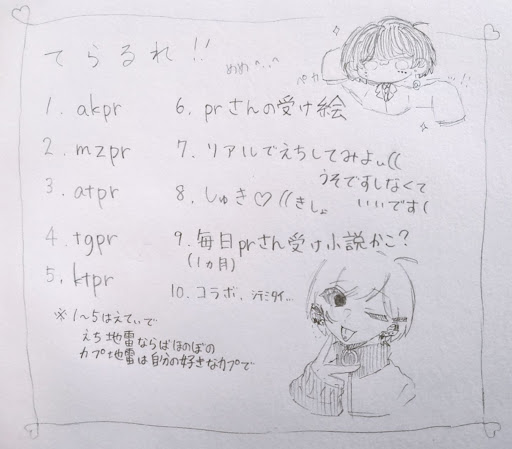 てらるれ!!
めめ^..^
ペカ
1. akpr
2. mzpr
3. atpr
4. tgpr
5. ktpr
※1〜5はえてぃで
えち地雷ならばほのぼの
カプ地雷は自分の好きなカプで
6. prさんの受け絵
7. リアルでえちしてみよぃ((
うそですしなくて
いいです(
8. しゅき♡((きしょ
9. 毎日prさん受け小説かこ?
(1ヵ月)
10. コラボ、シテミタイ...